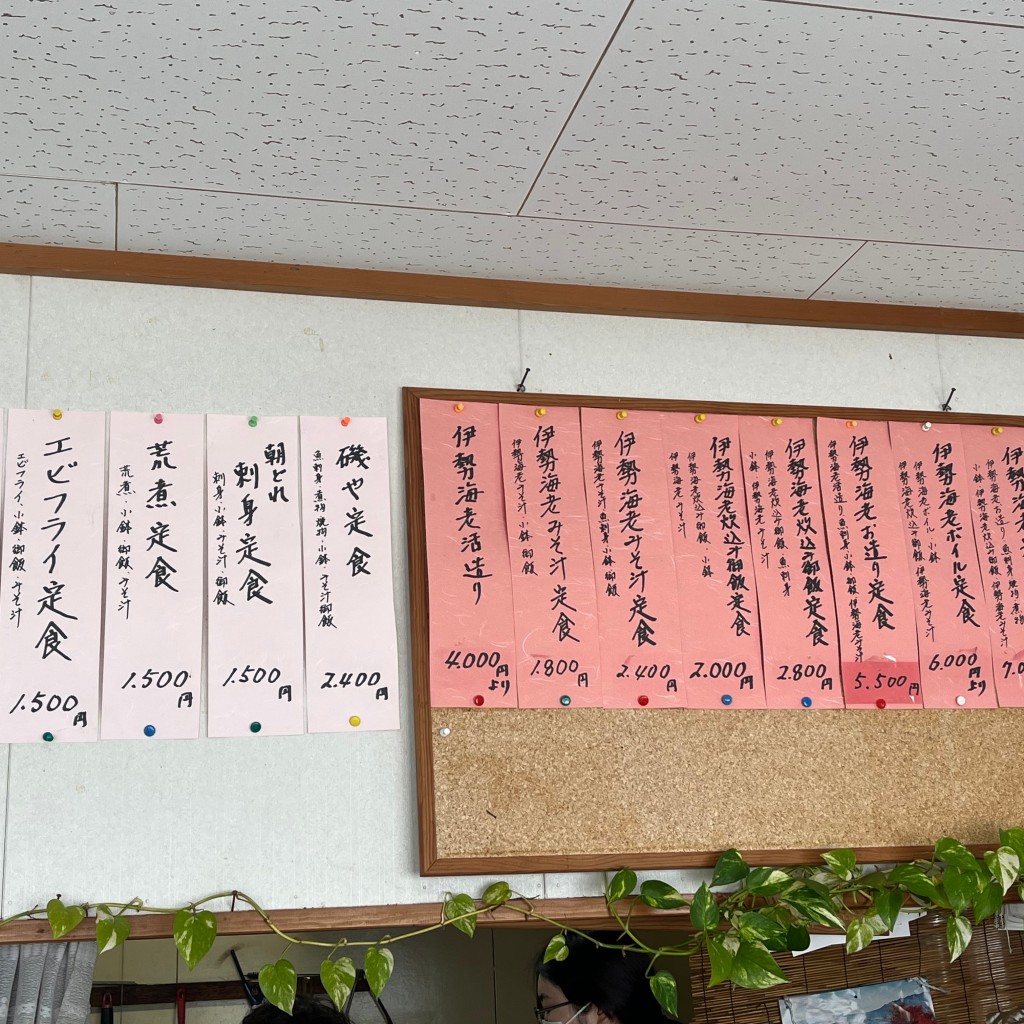 エビフライ定食
エビフライ・小鉢・御飯・みそ汁
1.500円
荒煮定食
荒煮・小鉢・御飯・みそ汁
1.500円
朝とれ
刺身定食
刺身・小鉢・みそ汁・御飯
1.500円
磯や定食
魚刺身 煮物 焼物 小鉢 みそ汁 御飯
2.400円
伊勢海老活造り
4.000円より
伊勢海老みそ汁定食
伊勢海老みそ汁 小鉢 御飯
1.800円
伊勢海老みそ汁定食
伊勢海老みそ汁 魚刺身 小鉢 御飯
2.400円
伊勢海老炊込み御飯定食
伊勢海老炊込み御飯・小鉢
伊勢海老みそ汁
2.000円
伊勢海老炊込み御飯定食
伊勢海老炊込み御飯 魚刺身
小鉢 伊勢海老みそ汁
2.800円
伊勢海老お造り定食
伊勢海老お造り 魚刺身 小鉢 御飯 伊勢海老みそ汁
5.500円
伊勢海老ボイル定食
伊勢海老ボイル・小鉢
伊勢海老炊込み御飯 伊勢海老みそ汁
6.000円より
伊勢海
伊勢海老お造り 魚刺身 焼物 煮物
小鉢 伊勢海老炊込み御飯 伊勢海老みそ汁